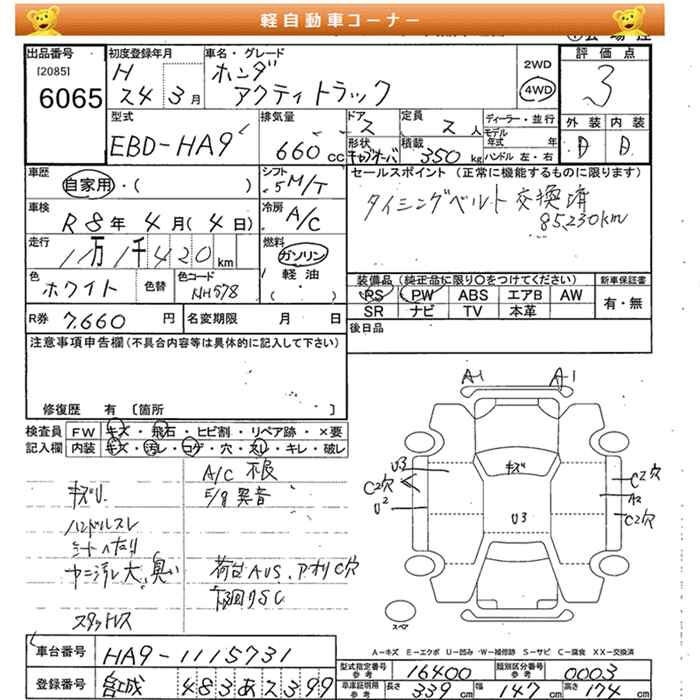 軽自動車コーナー
出品番号 [2085] 6065
初度登録年月 H 24 3月
車名・グレード ホンダ アクティトラック
2WD
4WD
評価点 3
外装 内装
D D
型式 EBD-HA9
排気量 660 cc
ドア 2
定員 2人
ディーラー・並行
モデル年式 年
形状 キャブオーバ
積載 350 kg
ハンドル 左・右
車歴 自家用・( )
シフト 5 M/T
セールスポイント (正常に機能するものに限ります)
タイミングベルト交換済
85,230km
車検 R8年 4月(4日)
冷房 A/C
走行 1万1千420km
燃料 ガソリン
軽油
( )
色 ホワイト 色替
色コード NH578
装備品 (純正品に限り○をつけてください)
PS PW ABS エアB AW
SR ナビ TV 本革
新車保証書
有・無
R券 7,660円
名変期限 月 日
後日品
注意事項申告欄(不具合内容等は具体的に記入して下さい)
修復歴 有 〔箇所 〕
検査員記入欄
FW キズ・飛石・ヒビ割・リペア跡・×要
内装 キズ・汚レ・コゲ・穴・スレ・キレ・破レ
A/C 不良
E/g 異音
キズU.
ハンドルスレ
シートヘタリ
ヤニ汚レ大、臭い
荷台AUS、アオリC穴
下回りSC
スタットレス
A-1 A-1
U3
C2穴
U2
キズU
U3
C2穴
A2
C2穴
スペア
A-キズ E-エクボ U-凹み W-補修跡 S-サビ C-腐食 XX-交換済
車台番号 HA9-1115731
型式指定番号 参考 16400
類別区分番号 参考 0003
登録番号 宮城 483 あ 2399
車庫証明用 参考 長さ 339 cm 幅 147 cm 高さ 174 cm